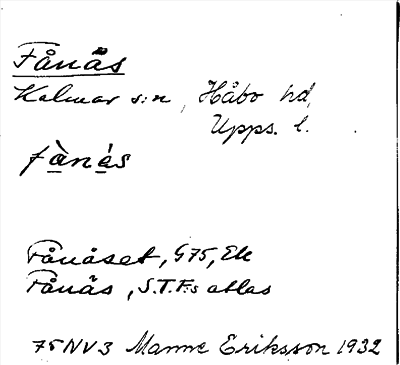 Fånäs
Kalmar s:n, Håbo hd,
Upps. l.
fà̱ná̱s
Fånåset, G75, Ek
Fånäs, S.T.F:s atlas
75NV3 Manne Eriksson 1932